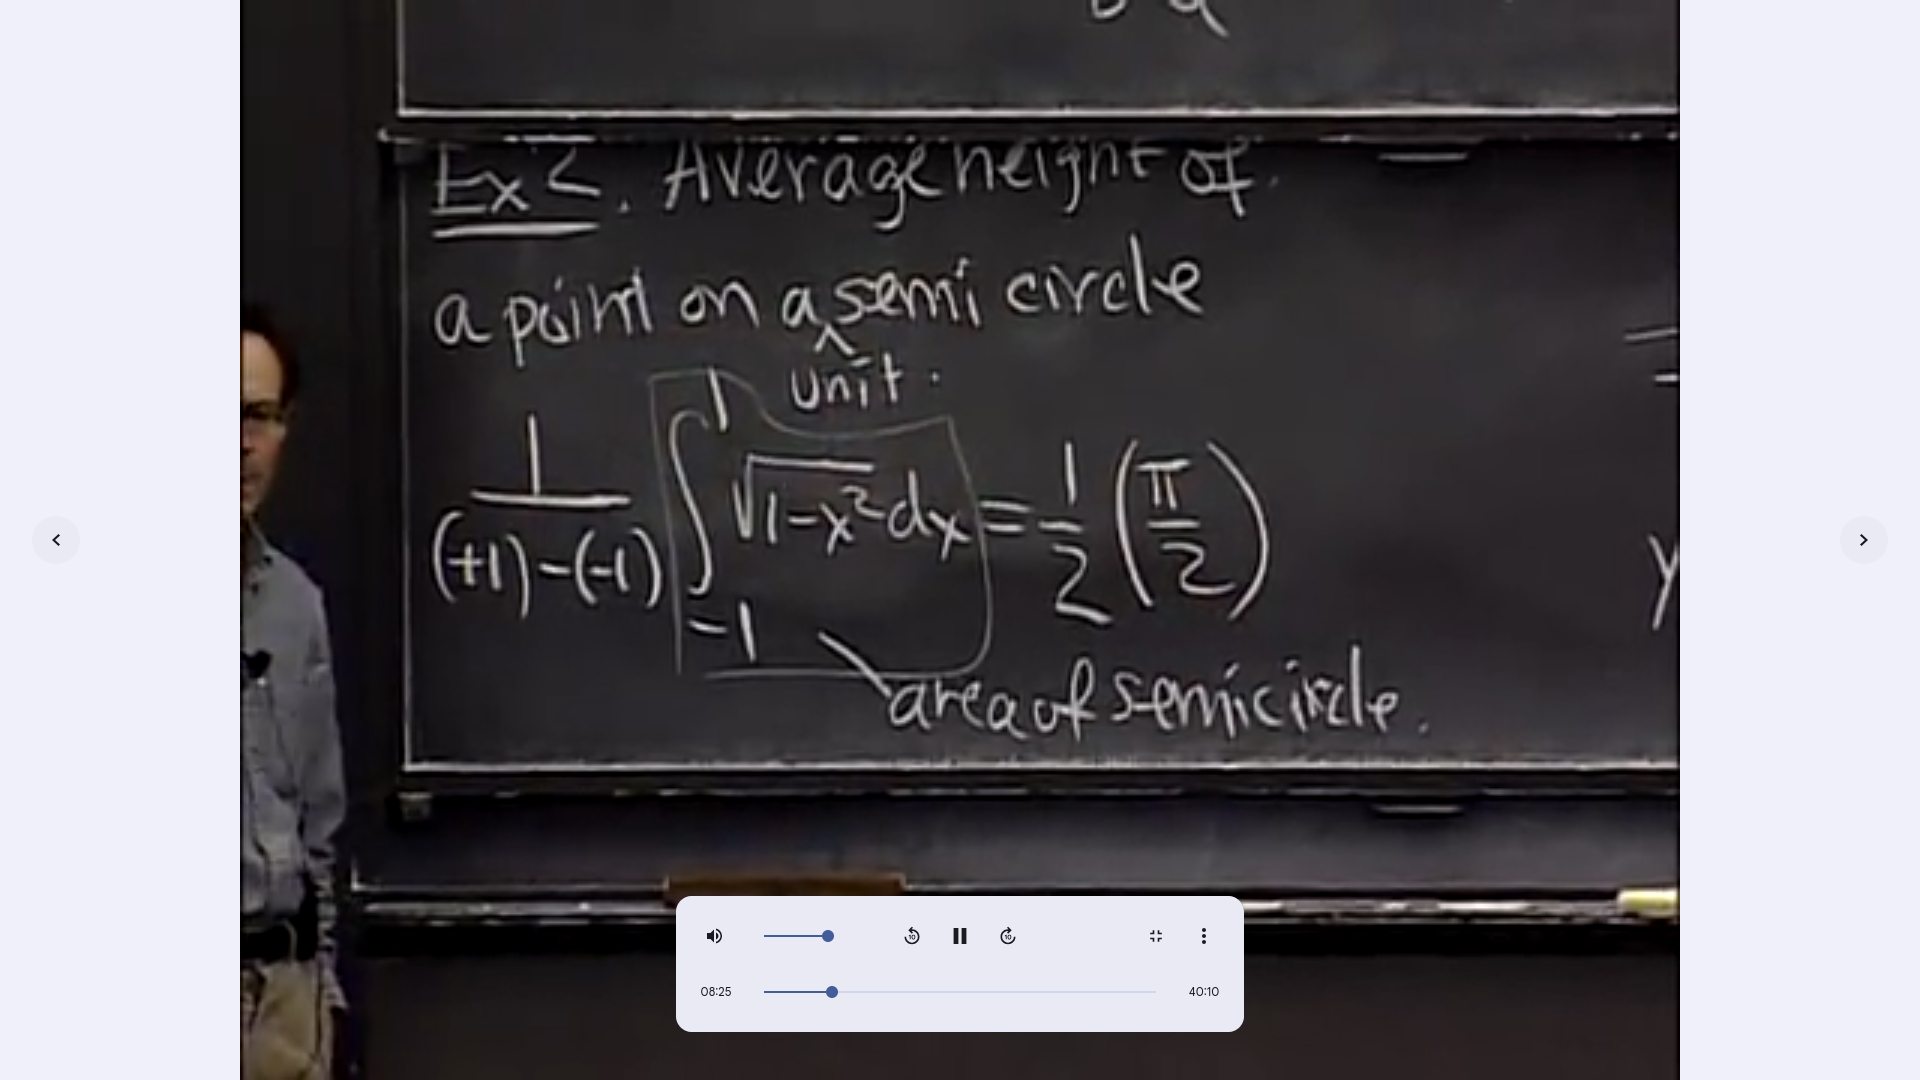 Ex 2. Average height of
a point on a semi circle
^
unit.
1/((+1)-(-1)) ∫_{-1}^{1} √(1-x²) dx = 1/2 (π/2)
area of semicircle.
y
10
10
08:25
40:10